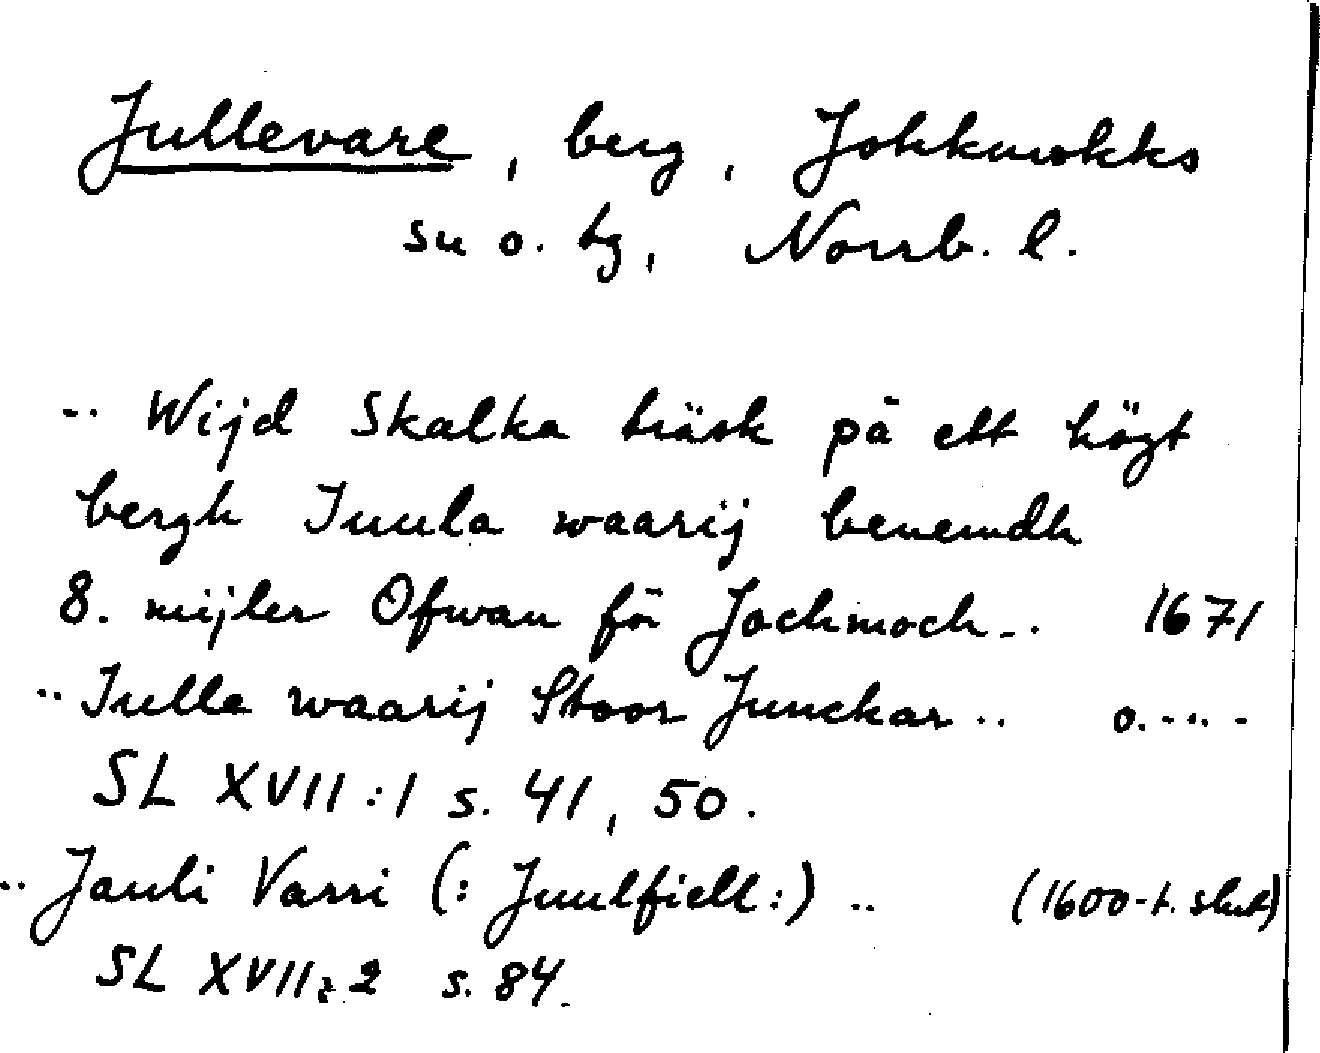 Jullevare, berg, Jokkmokks
sn o. tg, Norrb. l.
.. Wijd Skalka träsk på ett högt
bergh Juula waarij benemdh
8. mijler Ofwan för Jochmoch.. 1671
.. Julla waarij Stoor Junckar .. o. -"- -
SL XVII:1 s. 41, 50.
.. Jauli Varri (: Juulfiell:) .. (1600-t. slut)
SL XVII:2 s. 84.